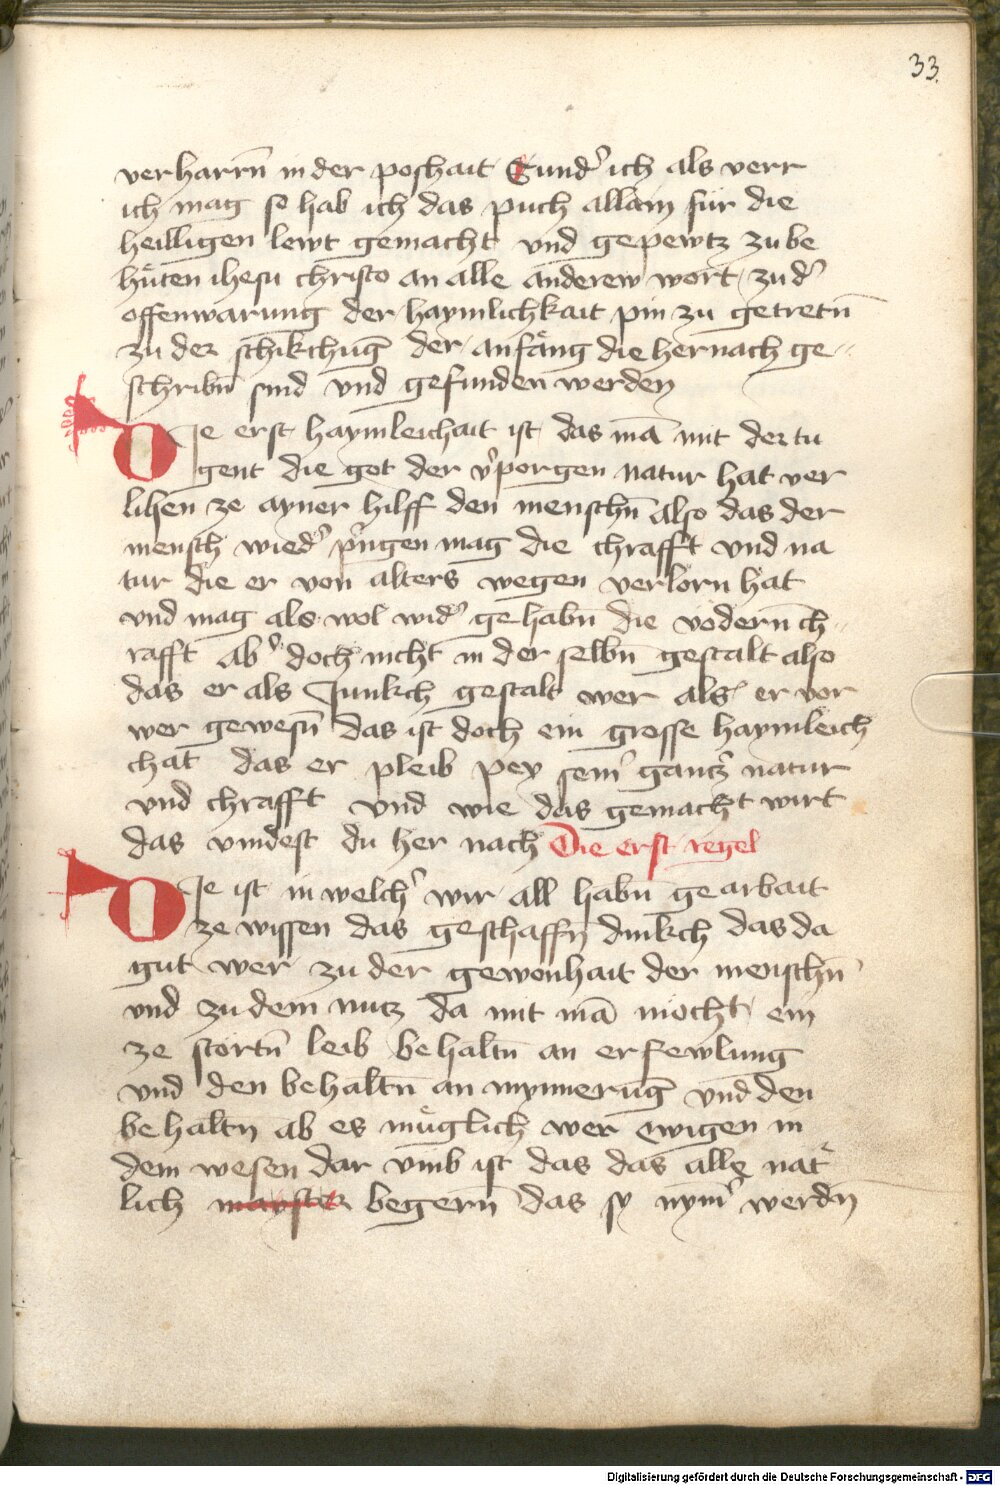 33.
verharrn̄ in der poshait Sunder' ich als verr
ich mag so hab ich das puch allain für die
heilligen lewt gemacht vnd gepewtz zu be
hüten ihesu christo an alle anderew wort zu d'
offenwarung der haymlichkait pin zu getretn̄
zu der schikchūg der anfäng die hernach ge-
schribn̄ sind vnd gefunden werden
Die erst haymleichait ist das mā mit der tu
gent die got der v'porgen natur hat ver
lihen ze ayner hilff den menschn̄ also das der
mensch wied' p'ingen mag die chrafft vnd na
tur die er von alters wegen verlorn hat
vnd mag als wol wid' gehabn̄ die vodern ch-
rafft Ab' doch nicht in der selbn̄ gestalt also
das er als Junkch gestalt wer als er vor
wer gewesn̄ das ist doch ein grosse haymleich
chat das er pleib pey sein' gantz' natur
vnd chrafft vnd wie das gemacht wirt
das vindest du her nach Die erst regel
Die ist in welch' wir all habn̄ gearbait
ze wissen das geschaffn dinkch das da
gut wer zu der gewonhait der menschn̄
vnd zu dem nutz da mit mā möcht ein
ze störtn̄ leib behaltn̄ an erfewlung
vnd den behaltn̄ an mynnerūg vnd den
behaltn ab es müglich wer ewigen in
dem wesen dar vmb ist das das alle nat'
lich begern̄ das sy nym' werdn̄
Digitalisierung gefördert durch die Deutsche Forschungsgemeinschaft - DFG